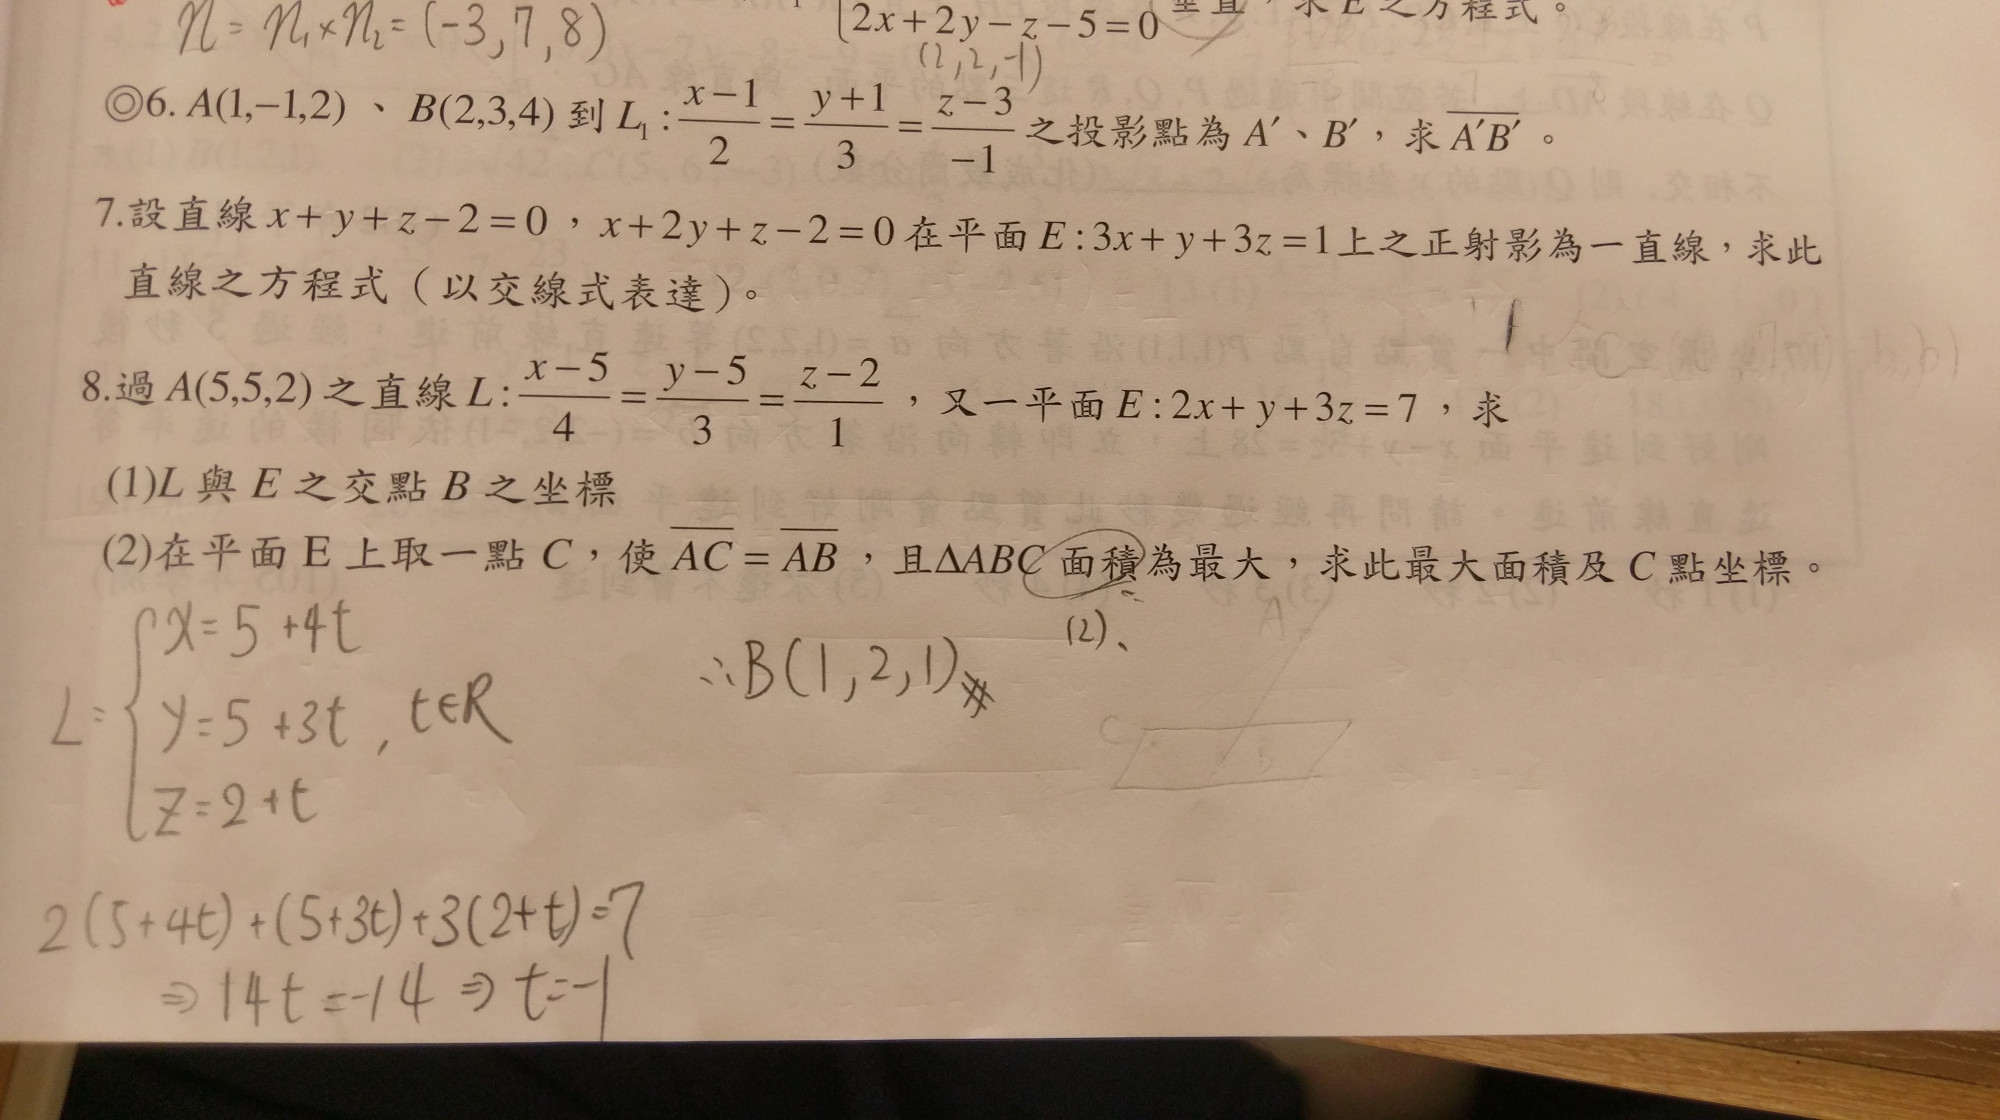 n = n₁×n₂ = (-3,7,8)
2x+2y−z−5=0 垂直，求E之方程式。
(2,2,-1)
◎6. A(1,−1,2)、B(2,3,4)到L₁:(x−1)/2=(y+1)/3=(z−3)/−1之投影點為A′、B′，求A′B′。
7.設直線x+y+z−2=0，x+2y+z−2=0在平面E:3x+y+3z=1上之正射影為一直線，求此
直線之方程式（以交線式表達）。
8.過A(5,5,2)之直線L:(x−5)/4=(y−5)/3=(z−2)/1，又一平面E:2x+y+3z=7，求
(1)L與E之交點B之坐標
(2)在平面E上取一點C，使AC=AB，且ΔABC面積為最大，求此最大面積及C點坐標。
x=5+4t
L= y=5+3t, t∈R
z=2+t
∴B(1,2,1)#
(2)、
A
C
B
2(5+4t)+(5+3t)+3(2+t)=7
⇒14t=-14⇒t=-1